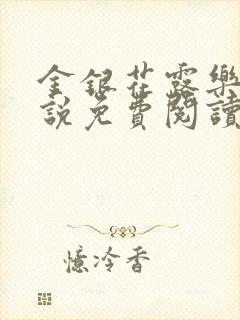 金銀花露樂
說免費閱讀
憶冷香